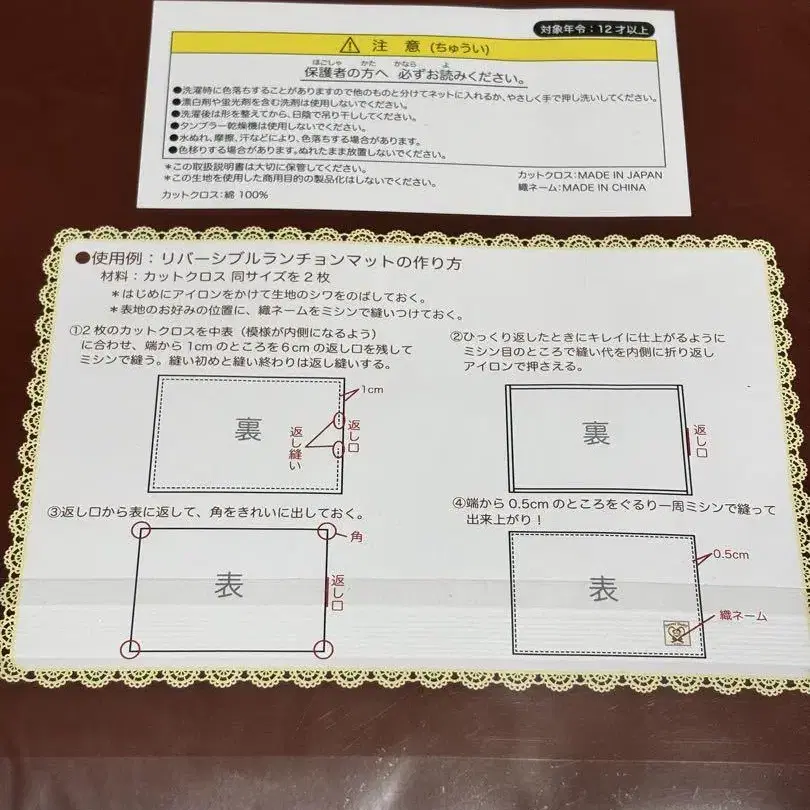 対象年令：12才以上
⚠ 注 意 (ちゅうい)
保護者の方へ 必ずお読みください。
ほごしゃ かた かなら よ
●洗濯時に色落ちすることがありますので他のものと分けてネットに入れるか、やさしく手で押し洗いしてください。
●漂白剤や蛍光剤を含む洗剤は使用しないでください。
●洗濯後は形を整えてから、日陰で吊り干ししてください。
●タンブラー乾燥機は使用しないでください。
●水ぬれ、摩擦、汗などにより、色落ちする場合があります。
●色移りする場合があります。ぬれたまま放置しないでください。
＊この取扱説明書は大切に保管してください。
＊この生地を使用した商用目的の製品化はしないでください。
カットクロス：綿 100%
カットクロス：MADE IN JAPAN
織ネーム：MADE IN CHINA
●使用例：リバーシブルランチョンマットの作り方
材料：カットクロス 同サイズを2枚
＊はじめにアイロンをかけて生地のシワをのばしておく。
＊表地のお好みの位置に、織ネームをミシンで縫いつけておく。
①2枚のカットクロスを中表（模様が内側になるよう）
に合わせ、端から1cmのところを6cmの返し口を残して
ミシンで縫う。縫い初めと縫い終わりは返し縫いする。
1cm
裏
返し縫い
返し口
②ひっくり返したときにキレイに仕上がるように
ミシン目のところで縫い代を内側に折り返し
アイロンで押さえる。
裏
返し口
③返し口から表に返して、角をきれいに出しておく。
角
表
返し口
④端から0.5cmのところをぐるり一周ミシンで縫って
出来上がり！
0.5cm
表
織ネーム